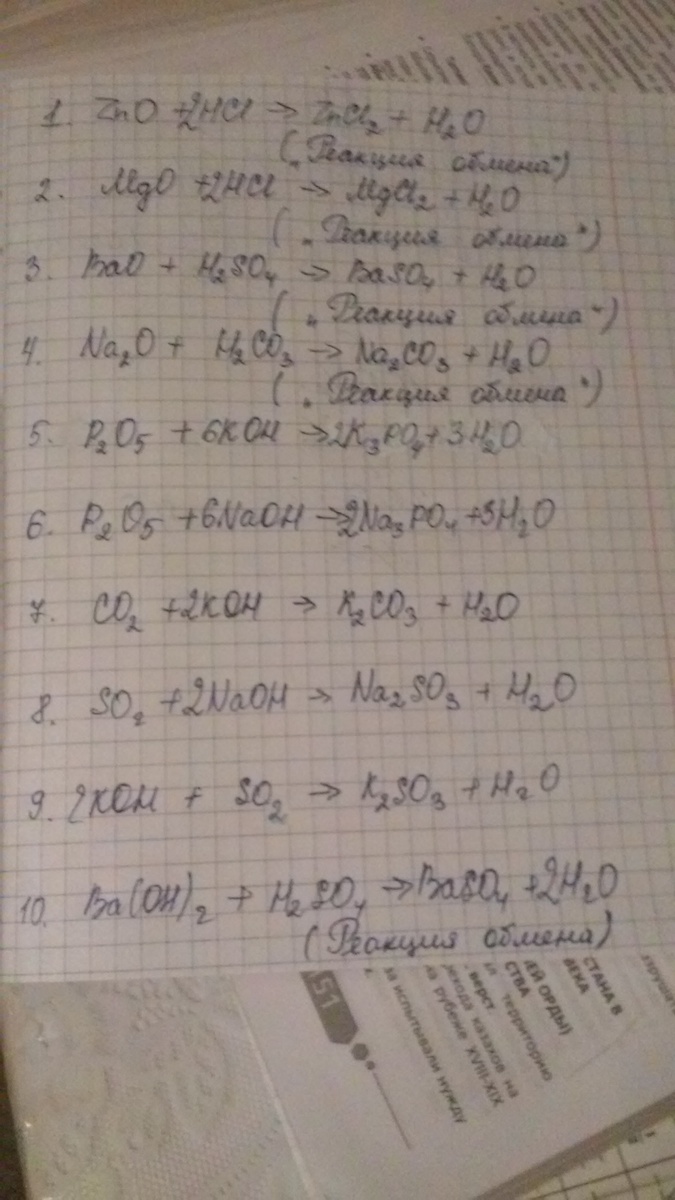 1. ZnO +2HCl → ZnCl₂ + H₂O
(„Реакция обмена")
2. MgO +2HCl → MgCl₂ + H₂O
(„Реакция обмена")
3. BaO + H₂SO₄ → BaSO₄ + H₂O
(„Реакция обмена")
4. Na₂O + H₂CO₃ → Na₂CO₃ + H₂O
(„Реакция обмена")
5. P₂O₅ + 6KOH → 2K₃PO₄ + 3H₂O
6. P₂O₅ +6NaOH → 2Na₃PO₄ +3H₂O
7. CO₂ +2KOH → K₂CO₃ + H₂O
8. SO₂ +2NaOH → Na₂SO₃ + H₂O
9. 2KOH + SO₂ → K₂SO₃ + H₂O
10. Ba(OH)₂ + H₂SO₄ → BaSO₄ +2H₂O
(Реакция обмена)
СТАНА В
ЕЙ ОРДЫ)
СТВА
территорию
верст
хода казахов на
на рубеже XVIII-XIX
за испытывали нужду
51